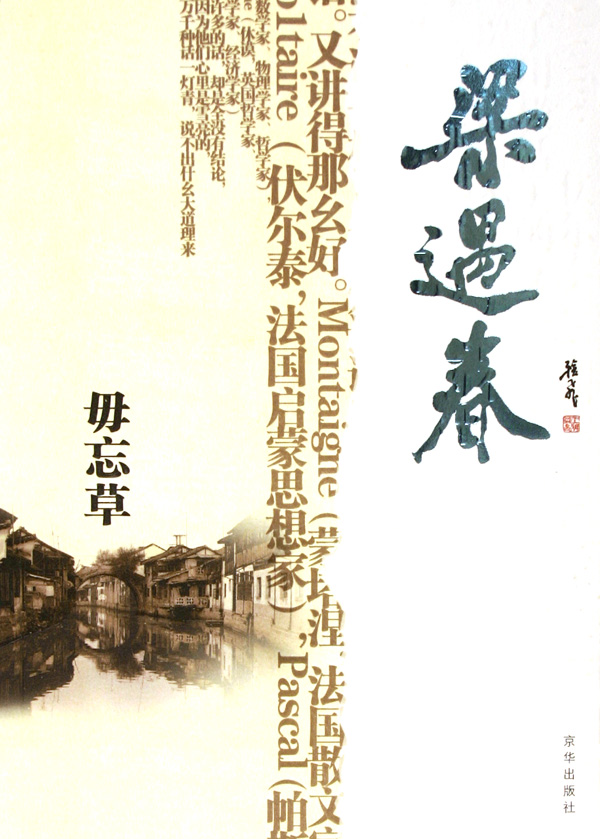 梁遇春
京华出版社
。又讲得那幺好。Montaigne（蒙坦涅，法国散文
oltaire（伏尔泰，法国启蒙思想家），Pascal（帕
数学家、物理学家、哲学家），
e（休谟，英国哲学家
学家、经济学家）
许多的话，却是全没有结论，
因为他们心里是雪亮的
万千种话一灯青，说不出什幺大道理来
毋忘草